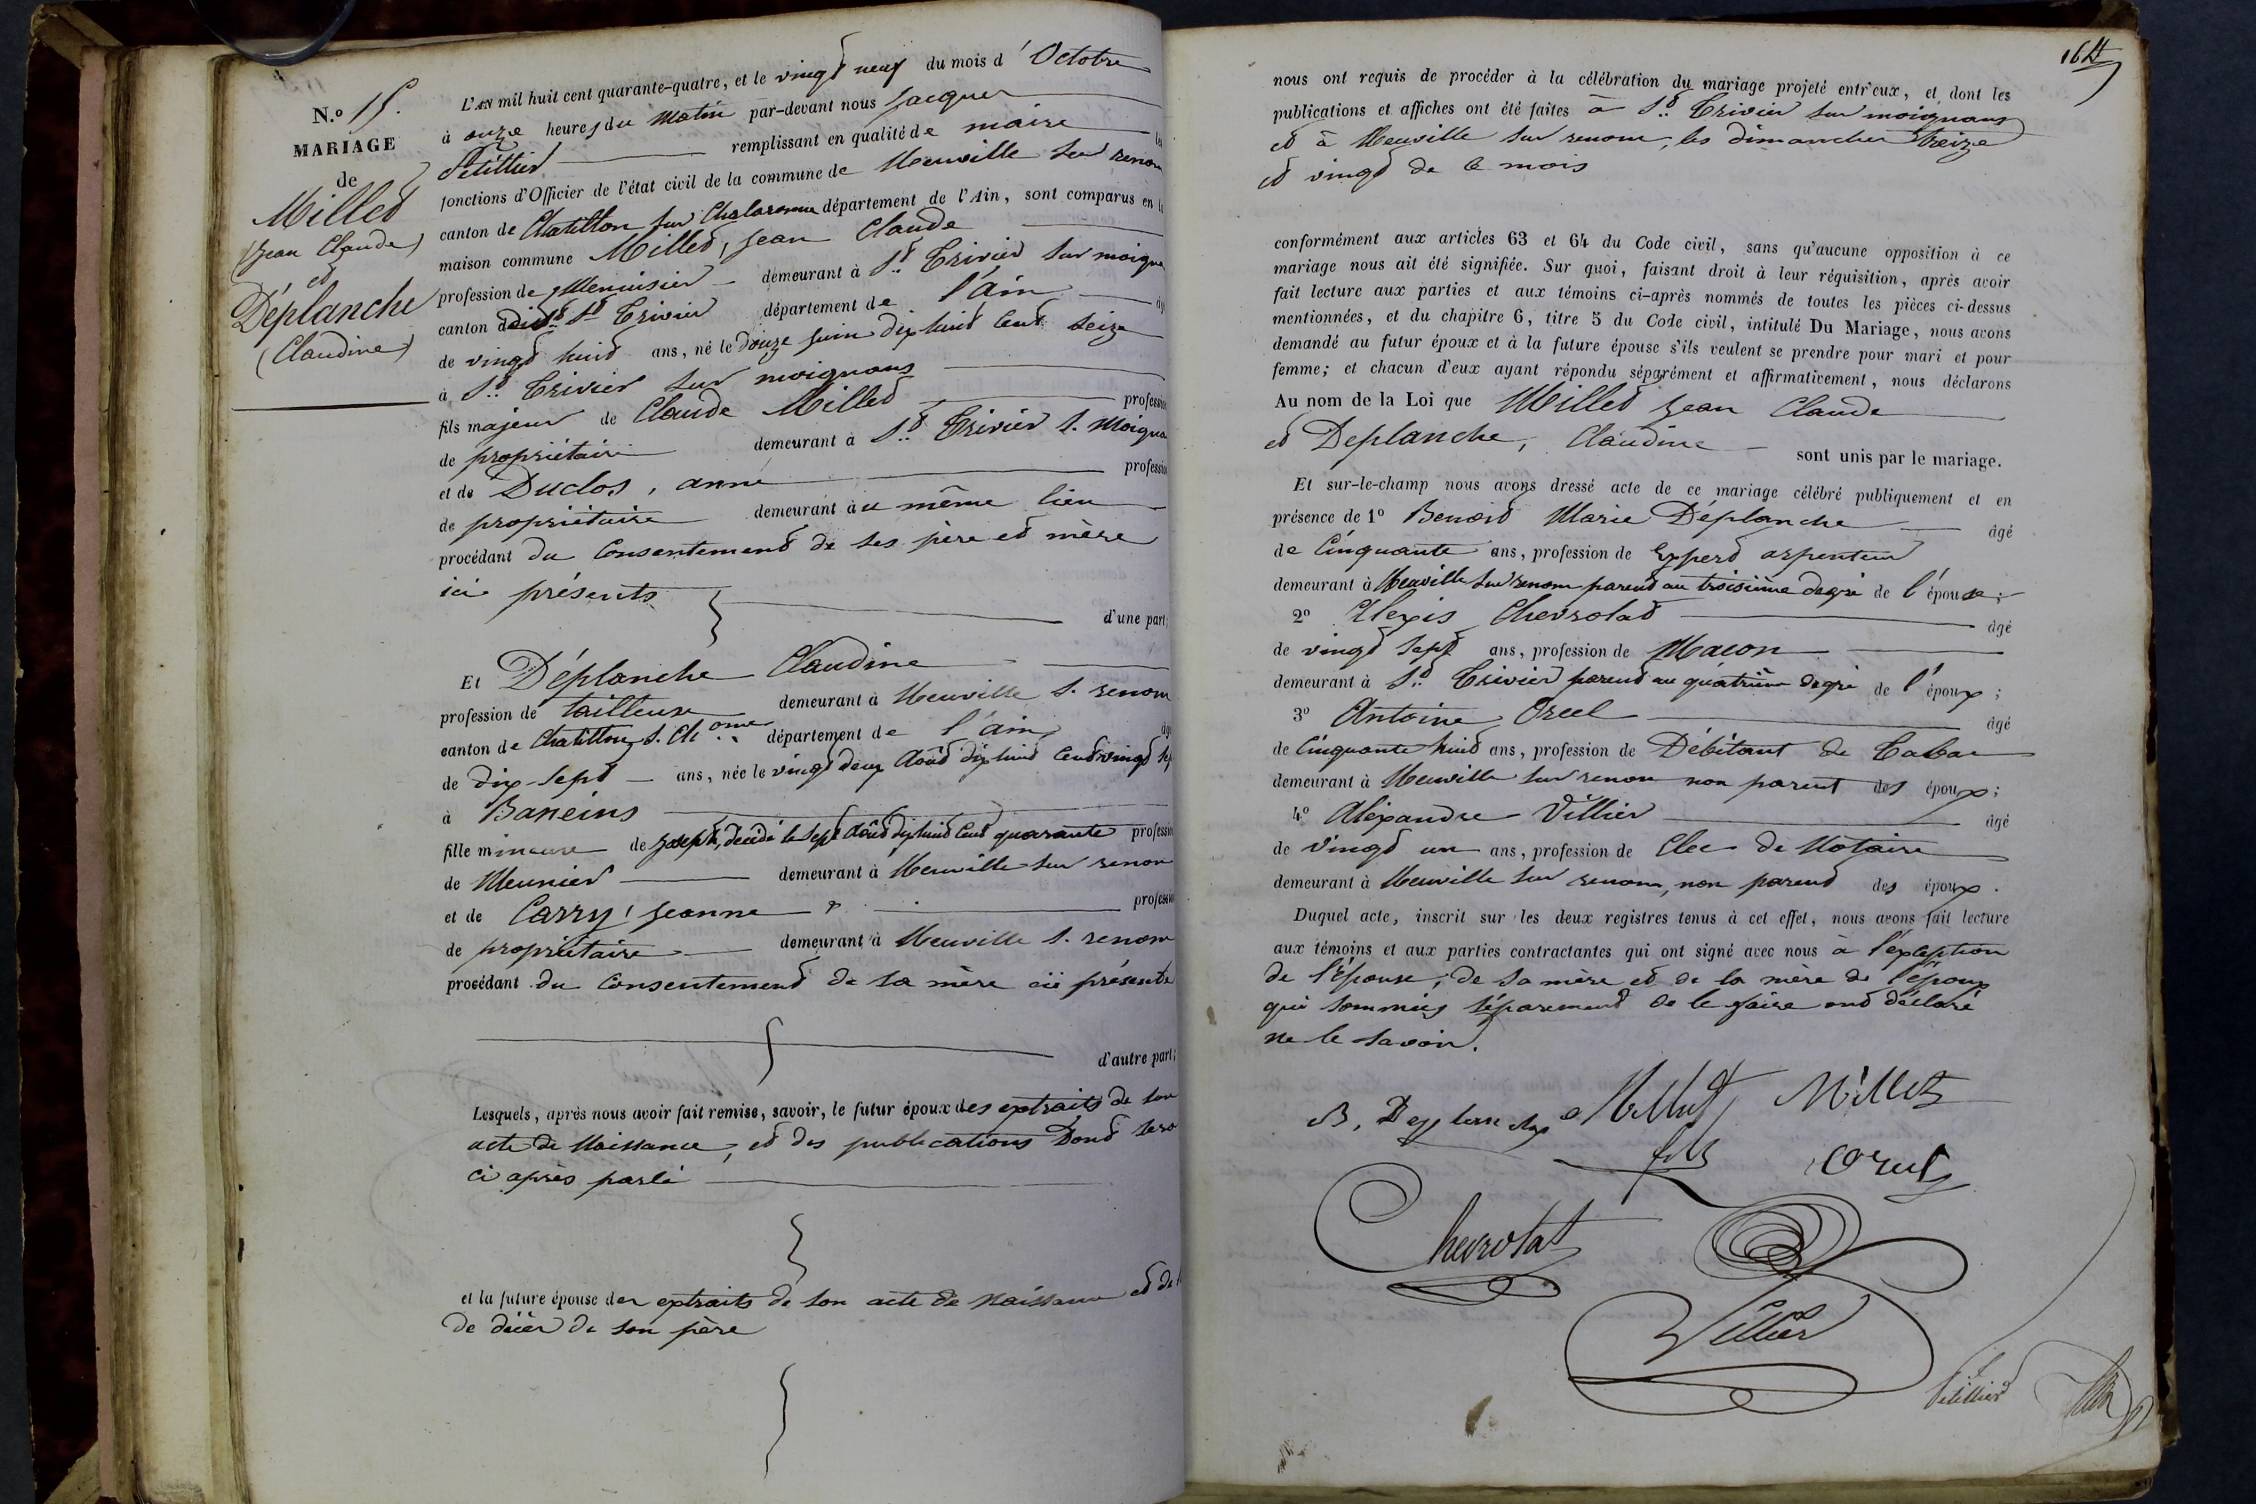 N.o 15.
MARIAGE
de
Milled
(Jean Claude)
et
Déplanche
(Claudine)
L'AN mil huit cent quarante-quatre, et le vingt neuf du mois d'Octobre
à onze heures du Matin par-devant nous Jacques
Petitlier remplissant en qualité de maire les
fonctions d'Officier de l'état civil de la commune de Neuville sur renom
canton de Chatillon sur Chalaronne département de l'Ain, sont comparus en la
maison commune Milled, Jean Claude
profession de Menuisier demeurant à St. Trivier sur moigna
canton de St Trivier département de l'ain
de vingt huit ans, né le Douze Juin dix huit Cent Seize
à St. Trivier sur moignans
fils majeur de Claude Milled profession
de propriétaire demeurant à St. Trivier s. moigna
et de Duclos, anne profession
de propriétaire demeurant au même lieu
procédant du Consentement de ses père et mère
ici présents
d'une part;
Et Déplanche Claudine
profession de tailleuse demeurant à Neuville s. renom
canton de Chatillon s. Ch onne département de l'ain
de dix-sept ans, née le vingt deux Août dix huit Cent vingt sep
à Baneins
fille mineure de Joseph, décédé le sept Août dix huit Cent quarante profession
de Meunier demeurant à Neuville sur renom
et de Carry, Jeanne profession
de propriétaire demeurant à Neuville s. renom
procédant du Consentement de sa mère ici présente
d'autre part;
Lesquels, après nous avoir fait remise, savoir, le futur époux des extraits de son
acte de Naissance, et des publications Dont sera
ci après parlé
et la future épouse des extraits de son acte de Naissance et de
de décès de son père
164
nous ont requis de procéder à la célébration du mariage projeté entr'eux, et dont les
publications et affiches ont été faites à St. Trivier sur moignans
et à Neuville sur renom, les dimanches treize
et vingt de ce mois
conformément aux articles 63 et 64 du Code civil, sans qu'aucune opposition à ce
mariage nous ait été signifiée. Sur quoi, faisant droit à leur réquisition, après avoir
fait lecture aux parties et aux témoins ci-après nommés de toutes les pièces ci-dessus
mentionnées, et du chapitre 6, titre 5 du Code civil, intitulé Du Mariage, nous avons
demandé au futur époux et à la future épouse s'ils veulent se prendre pour mari et pour
femme; et chacun d'eux ayant répondu séparément et affirmativement, nous déclarons
Au nom de la Loi que Milled Jean Claude
et Deplanche, Claudine sont unis par le mariage.
Et sur-le-champ nous avons dressé acte de ce mariage célébré publiquement et en
présence de 1o Benoit Marie Déplanche âgé
de Cinquante ans, profession de Expert arpenteur
demeurant à Neuville sur renom parent au troisième degré de l'épouse;
2o Alexis Chevrotat âgé
de vingt sept ans, profession de Macon
demeurant à St. Trivier parent au quatrième degré de l'époux;
3o Antoine Orcel âgé
de Cinquante huit ans, profession de Débitant de Tabac
demeurant à Neuville sur renom non parent des époux;
4o Alexandre Villier âgé
de vingt un ans, profession de Clec de Notaire
demeurant à Neuville sur renom, non parent des époux.
Duquel acte, inscrit sur les deux registres tenus à cet effet, nous avons fait lecture
aux témoins et aux parties contractantes qui ont signé avec nous à l'exception
de l'épouse, de sa mère et de la mère de l'époux
qui sommés séparement de le faire ont déclaré
ne le savoir.
B. Deplanche Millet Millet
fils Orcel
Chevrotat
Villier
Petitlier